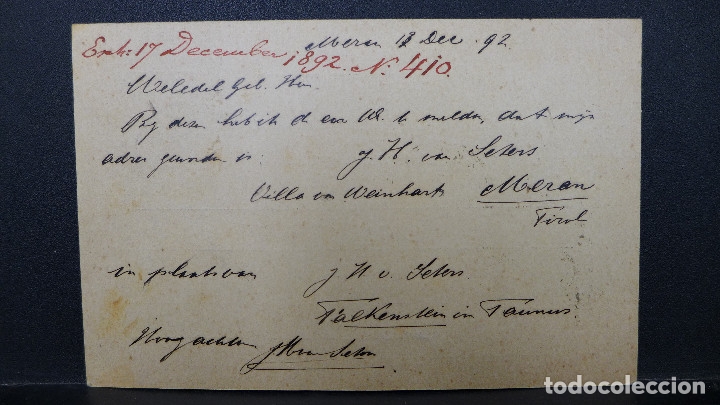 Meran 12 Dec. 92.
Exh: 17 December 1892. No. 410.
Weledel Geb. Heer.
By dezen heb ik de eer U te melden, dat mijn
adres geworden is: J. H. van Seters
Villa von Weinhart Meran
Tirol
in plaats van J H v. Seters
Falkenstein in Taunus.
Hoogachtend JH van Seters
todocoleccion.net